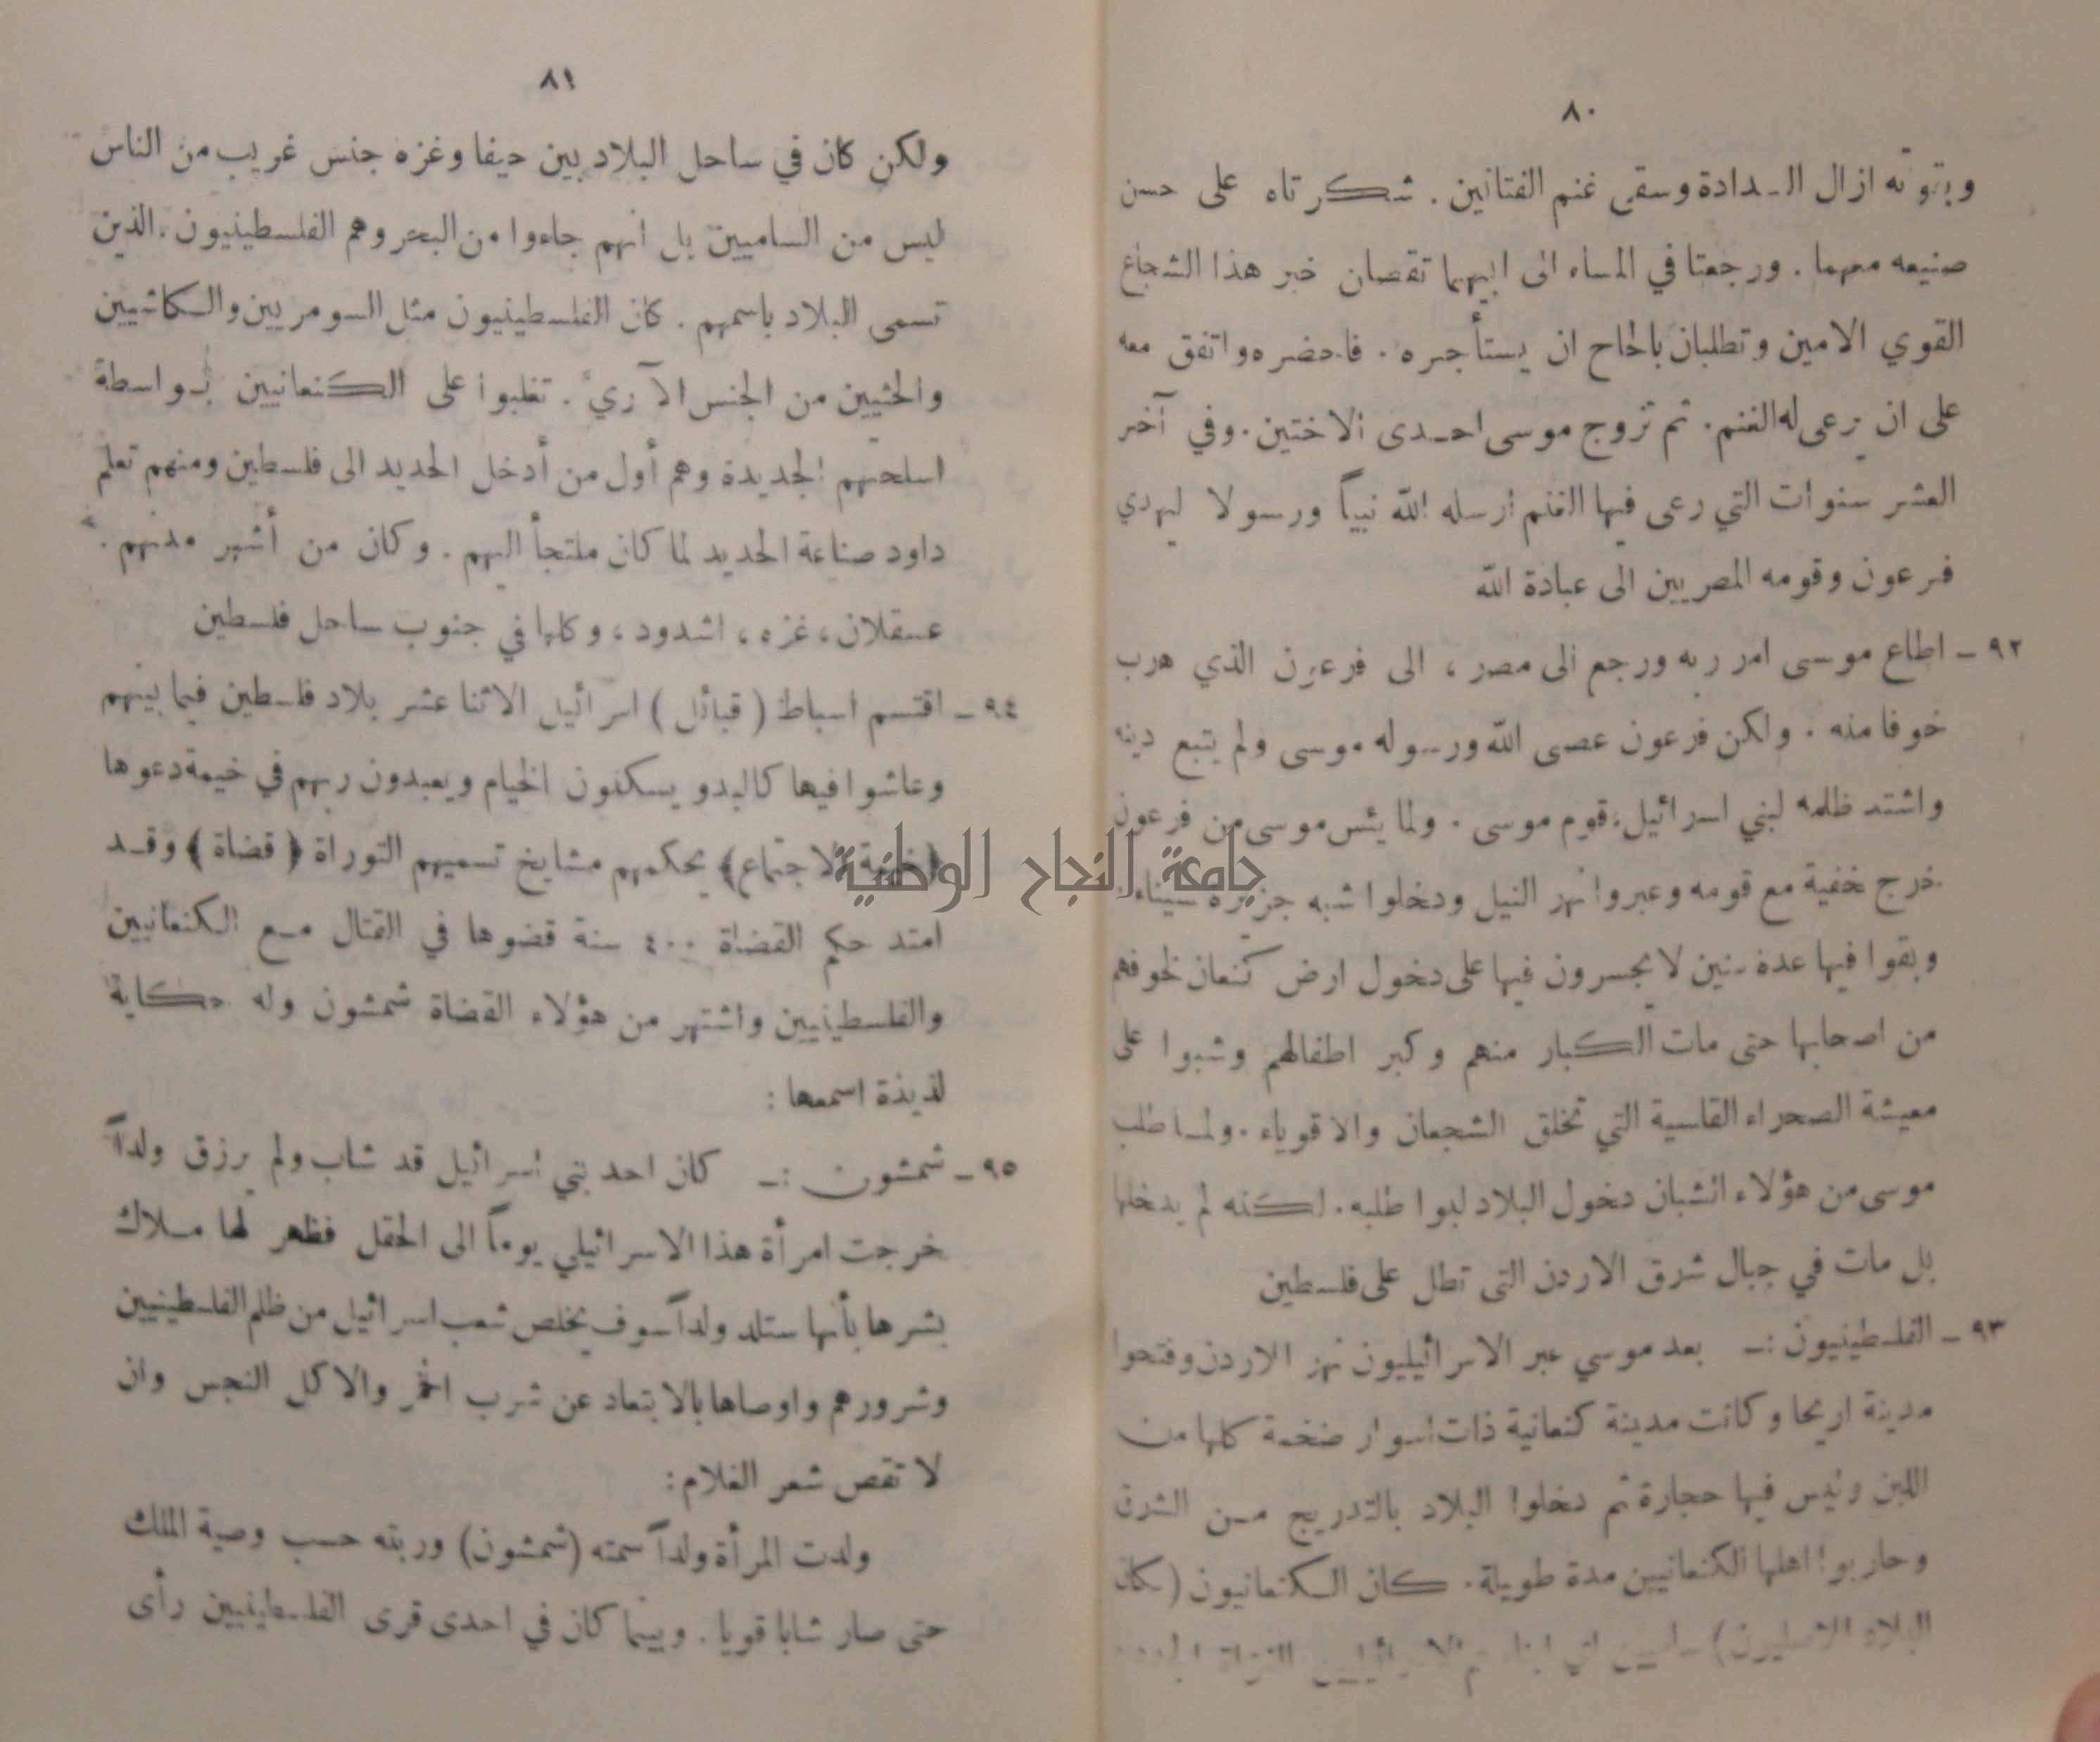 ٨٠
وبقوته ازال السدادة وسقى غنم الفتاتين . شكرتاه على حسن
صنيعه معهما . ورجعتا في المساء الى ابيهما تقصان خبر هذا الشجاع
القوي الامين وتطلبان بالحاح ان يستأجره . فاحضره واتفق معه
على ان يرعى له الغنم . ثم تزوج موسى احدى الاختين . وفي آخر
العشر سنوات التي رعى فيها الغنم ارسله الله نبياً ورسولا ليهدي
فرعون وقومه المصريين الى عبادة الله
٩٢ - اطاع موسى امر ربه ورجع الى مصر ، الى فرعون الذي هرب
خوفا منه . ولكن فرعون عصى الله ورسوله موسى ولم يتبع دينه
واشتد ظلمه لبني اسرائيل ، قوم موسى . ولما يئس موسى من فرعون
خرج خفية مع قومه وعبروا نهر النيل ودخلوا شبه جزيرة سيناء .
وبقوا فيها عدة سنين لا يجسرون فيها على دخول ارض كنعان لخوفهم
من اصحابها حتى مات الكبار منهم وكبر اطفالهم وشبوا على
معيشة الصحراء القاسية التي تخلق الشجعان والاقوياء . ولما طلب
موسى من هؤلاء الشبان دخول البلاد لبوا طلبه . لكنه لم يدخلها
بل مات في جبال شرق الاردن التى تطل على فلسطين
٩٣ - الفلسطينيون :- بعد موسي عبر الاسرائيليون نهر الاردن وفتحوا
مدينة اريحا وكانت مدينة كنعانية ذات اسوار ضخمة كلها من
اللبن وليس فيها حجارة ثم دخلوا البلاد بالتدريج من الشرق
وحاربوا اهلها الكنعانيين مدة طويلة . كان الكنعانيون (سكان
البلاد الاصليون)
٨١
ولكن كان في ساحل البلاد بين حيفا وغزه جنس غريب من الناس
ليس من الساميين بل انهم جاءوا من البحر وهم الفلسطينيون . الذين
تسمى البلاد باسمهم . كان الفلسطينيون مثل السومريين والكاشيين
والحثيين من الجنس الآري . تغلبوا على الكنعانيين بواسطة
اسلحتهم الجديدة وهم أول من أدخل الحديد الى فلسطين ومنهم تعلم
داود صناعة الحديد لما كان ملتجأ اليهم . وكان من أشهر مدنهم .
عسقلان ، غزه ، اشدود ، وكلها في جنوب ساحل فلسطين
٩٤ - اقتسم اسباط (قبائل) اسرائيل الاثنا عشر بلاد فلسطين فيما بينهم
وعاشوا فيها كالبدو يسكنون الخيام ويعبدون ربهم في خيمة دعوها
(خيمة الاجتماع) يحكمهم مشايخ تسميهم التوراة (قضاة) وقد
امتد حكم القضاة ٤٠٠ سنة قضوها في القتال مع الكنعانيين
والفلسطينيين واشتهر من هؤلاء القضاة شمشون وله حكاية
لذيذة اسمعها :
٩٥ - شمشون :- كان احد بني اسرائيل قد شاب ولم يرزق ولداً
خرجت امرأة هذا الاسرائيلي يوماً الى الحقل فظهر لها ملاك
بشرها بأنها ستلد ولداً سوف يخلص شعب اسرائيل من ظلم الفلسطينيين
وشرورهم واوصاها بالابتعاد عن شرب الخمر والاكل النجس وان
لا تقص شعر الغلام :
ولدت المرأة ولداً سمته (شمشون) وربته حسب وصية الملك
حتى صار شابا قويا . وبينما كان في احدى قرى الفلسطينيين رأى
جامعة النجاح الوطنية